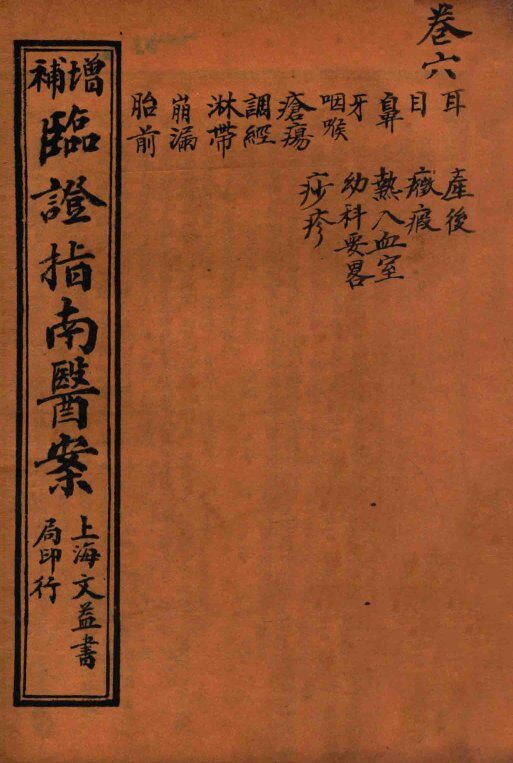 卷六
耳
目
鼻
牙
咽喉
瘡瘍
調經
淋帶
崩漏
胎前
產後
癥瘕
熱入血室
幼科要畧
痧疹
增補臨證指南醫案
上海文益書局印行